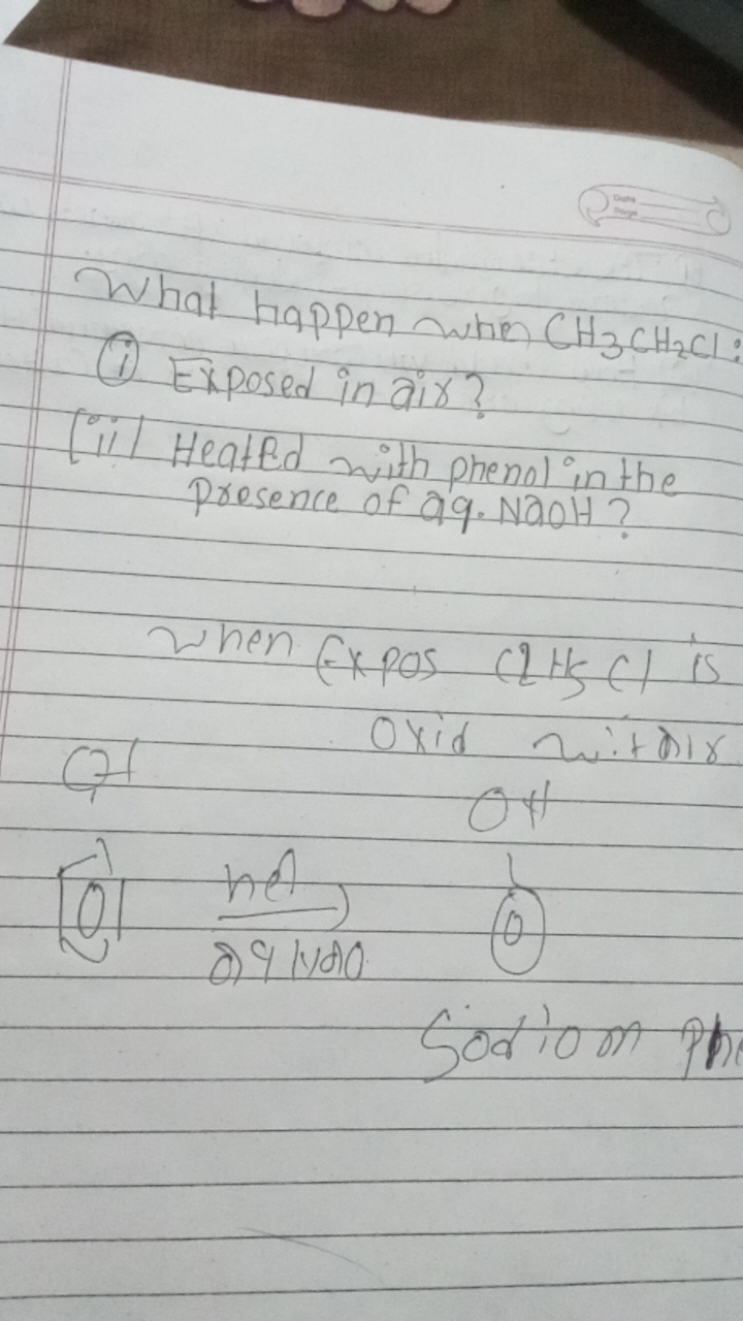 Date
Page
What happen when CH3CH2Cl:
(i) Exposed in air?
(ii) Heated with phenol in the
presence of aq. NaOH?
when Expos C2H5Cl is
Oxid wit air
OH
Sodiom Ph